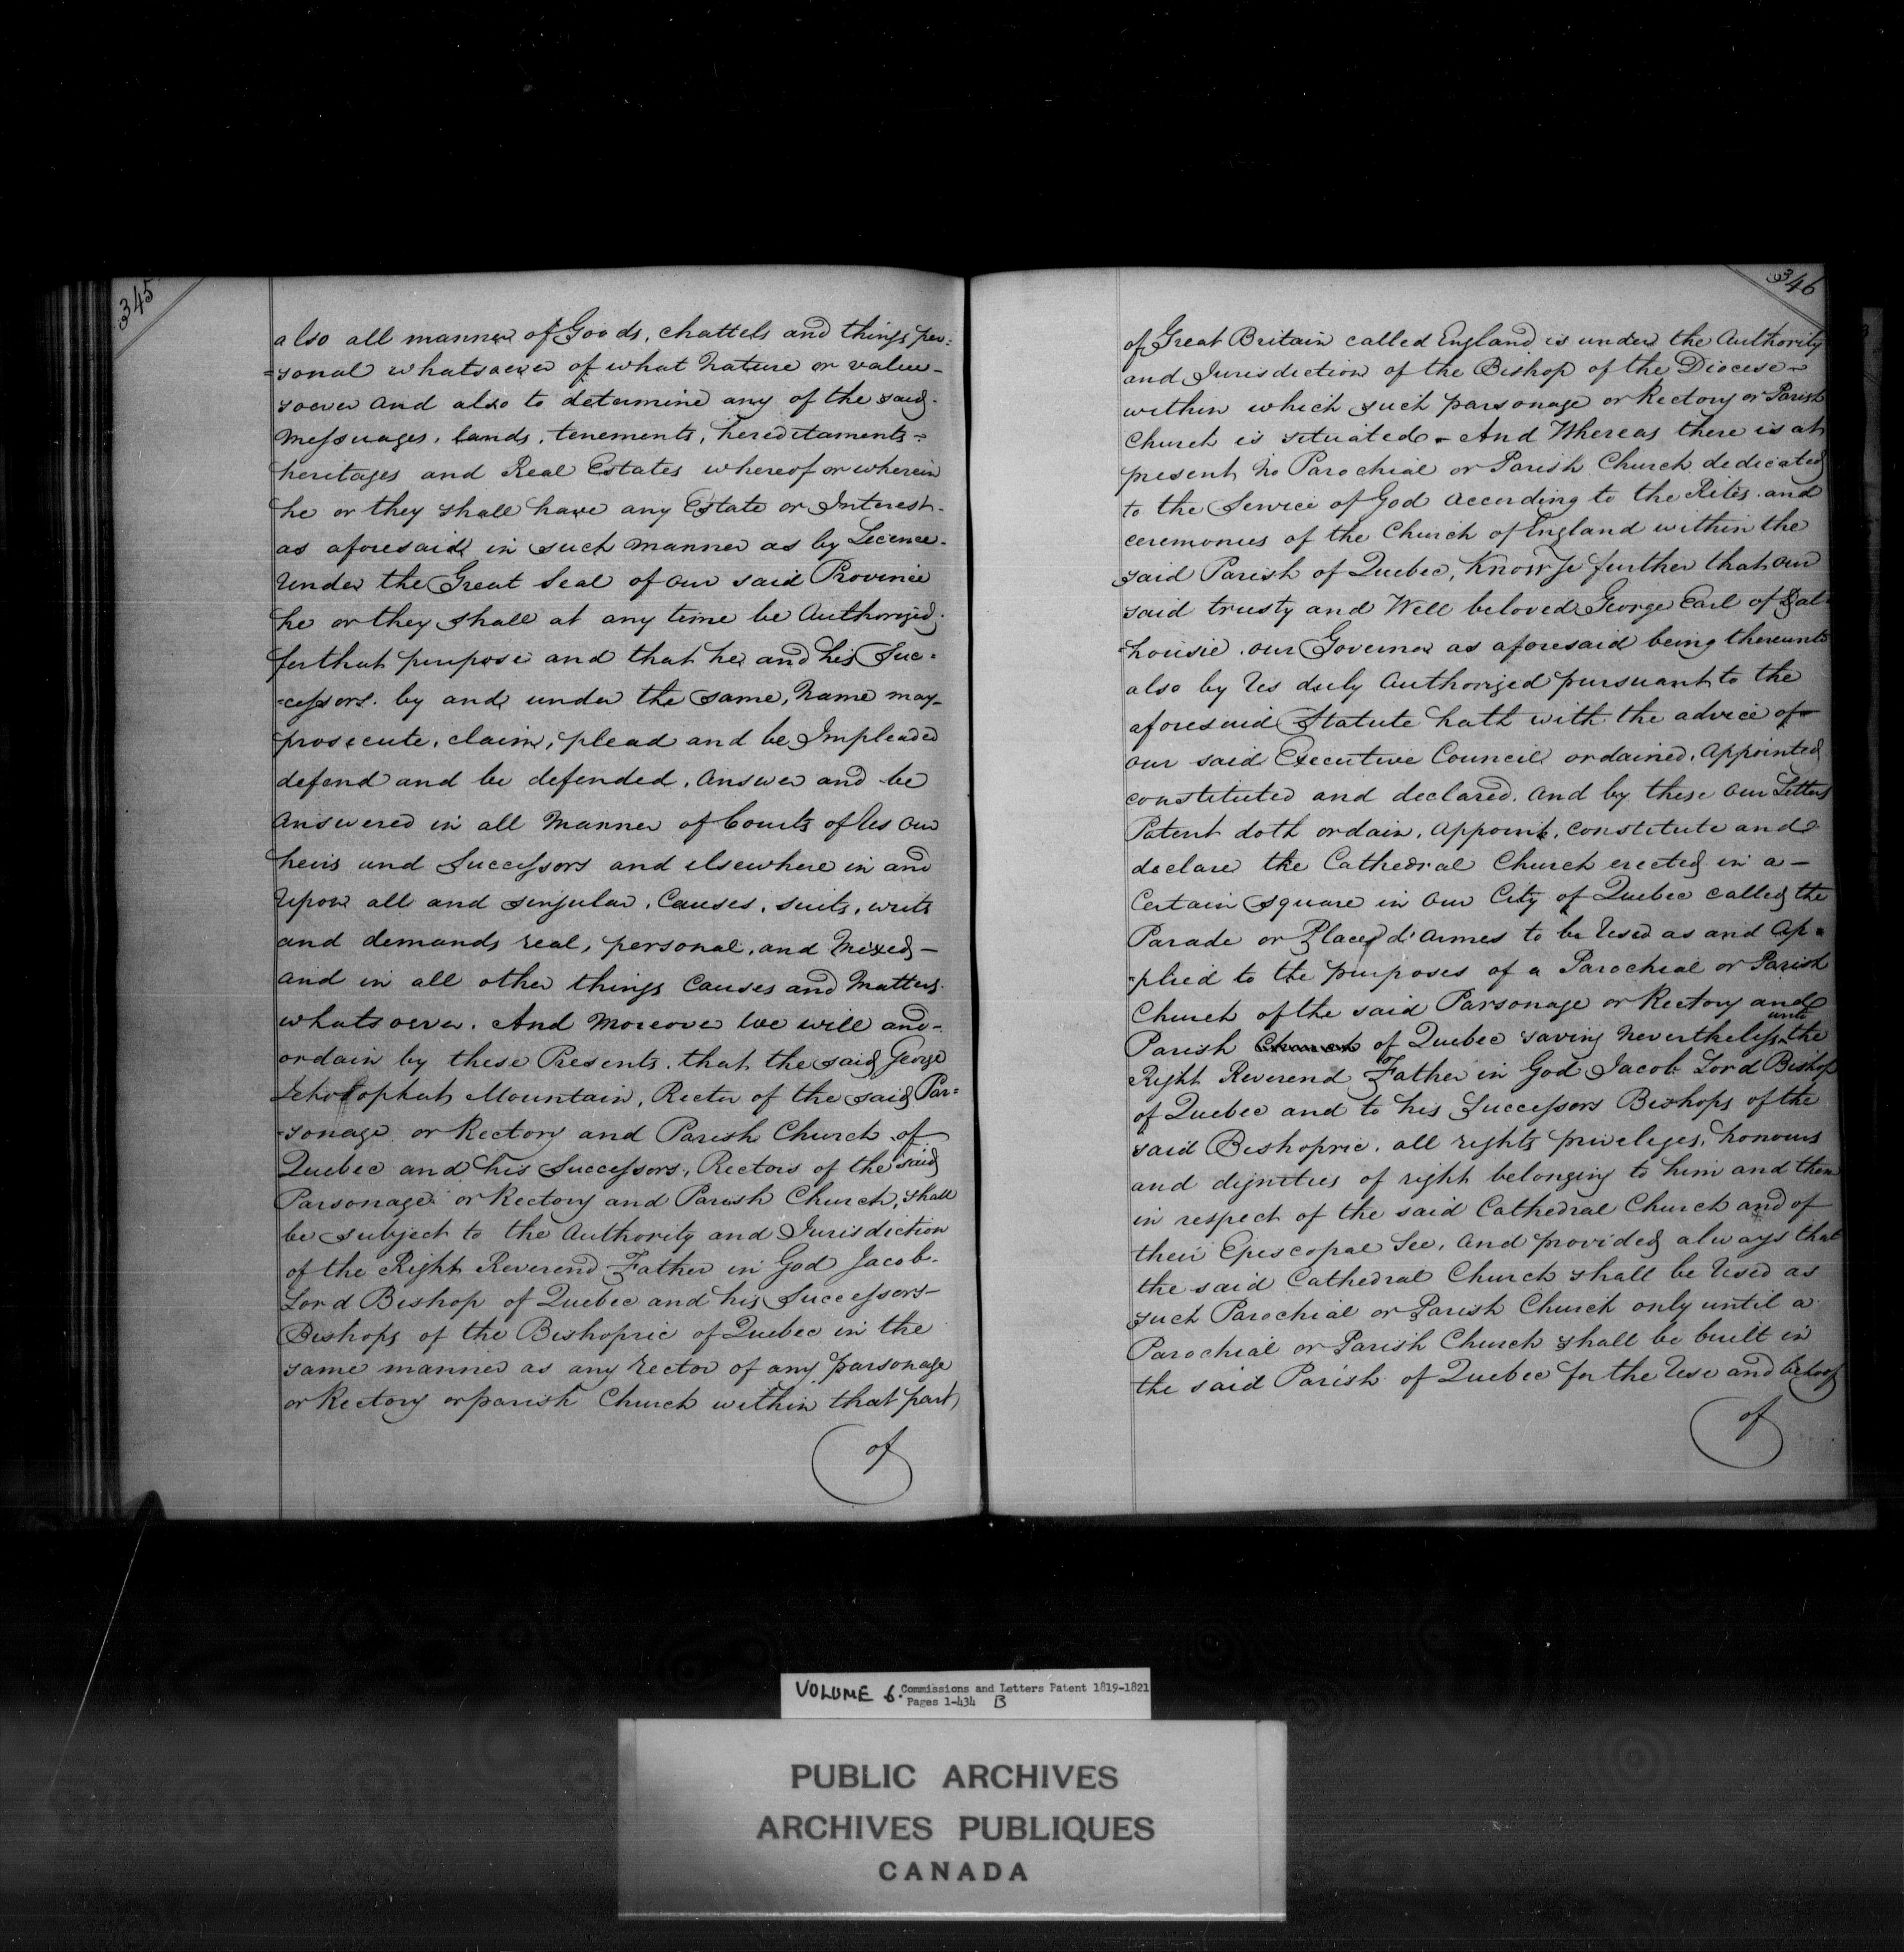 345
also all manner of Goods, chattels and things per=
=sonal whatsoever of what Nature or value-
soever and also to determine any of the said-
Messuages, lands, tenements, hereditaments-
heritages and Real Estates whereof or wherein
he or they shall have any Estate or Interest-
as aforesaid in such manner as by Licence-
Under the Great Seal of our said Province
he or they shall at any time be Authorized
for that purpose and that he and his Suc=
=cessors. by and under the same, Name may-
prosecute, claim, plead and be Impleaded
defend and be defended, answer and be
answered in all Manner of Courts of Us our
heirs and Successors and elsewhere in and
Upon all and singular, Causes, suits, writs
and demands real, personal, and Mixed-
and in all other things Causes and Matters
whatsoever. And Moreover We will and-
ordain by these Presents, that the said George
Jehosophat Mountain, Rector of the said Par=
=sonage or Rectory and Parish Church of
Quebec and his Successors, Rectors of the said
Parsonage or Rectory and Parish Church, shall
be subject to the Authority and Jurisdiction
of the Right Reverend Father in God Jacob-
Lord Bishop of Quebec and his Successors-
Bishops of the Bishopric of Quebec in the
same manner as any rector of any parsonage
or Rectory or parish Church within that part
of
346
of Great Britain called England is under the Authority
and Jurisdiction of the Bishop of the Diocese-
within which such parsonage or Rectory or Parish
Church is situated - And Whereas there is at
present no Parochial or Parish Church dedicated
to the Service of God according to the Rites and
ceremonies of the Church of England within the
said Parish of Quebec, Know Ye further that our
said trusty and Well beloved George Earl of Dal-
=housie our Governor as aforesaid being thereunto
also by Us duly Authorized pursuant to the
aforesaid Statute hath with the advice of
our said Executive Council ordained, appointed
constituted and declared, and by these our Letters
Patent doth ordain, appoint, constitute and
declare the Cathedral Church erected in a-
Certain square in our City of Quebec called the
Parade or Place d'armes to be Used as and ap=
=plied to the purposes of a Parochial or Parish
Church of the said Parsonage or Rectory and
Parish Church of Quebec saving Nevertheless unto the
Right Reverend Father in God Jacob Lord Bishop
of Quebec and to his Successors Bishops of the
said Bishopric, all rights priveleges, honours
and dignities of right belonging to him and them
in respect of the said Cathedral Church and of
their Episcopal See, and provided always that
the said Cathedral Church shall be Used as
such Parochial or Parish Church only until a
Parochial or Parish Church shall be built in
the said Parish of Quebec for the Use and behoof
of
VOLUME 6. Commissions and Letters Patent 1819-1821
Pages 1-434 B
PUBLIC ARCHIVES
ARCHIVES PUBLIQUES
CANADA